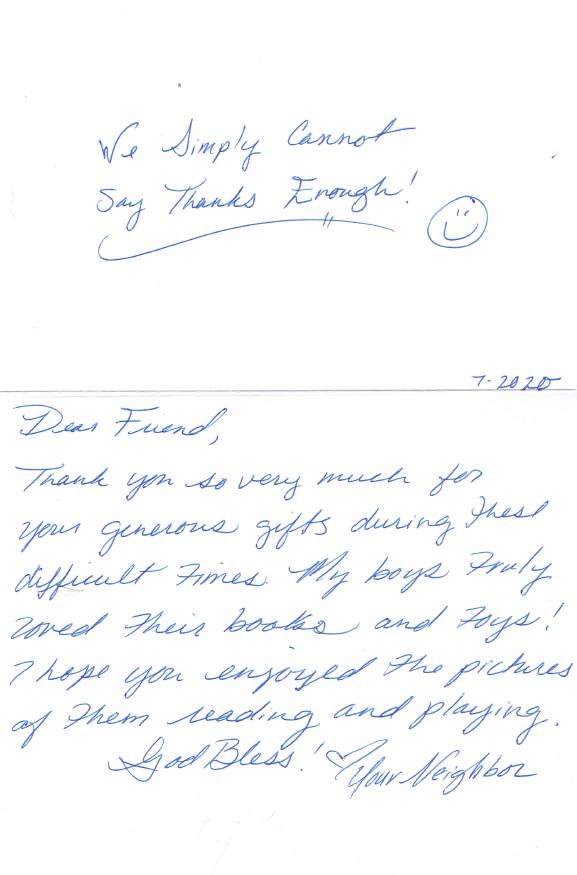 We Simply Cannot
Say Thanks Enough!
7-2020
Dear Friend,
Thank you so very much for
your generous gifts during these
difficult times. My boys truly
loved their books and toys!
I hope you enjoyed the pictures
of them reading and playing.
God Bless! ♡ Your Neighbor